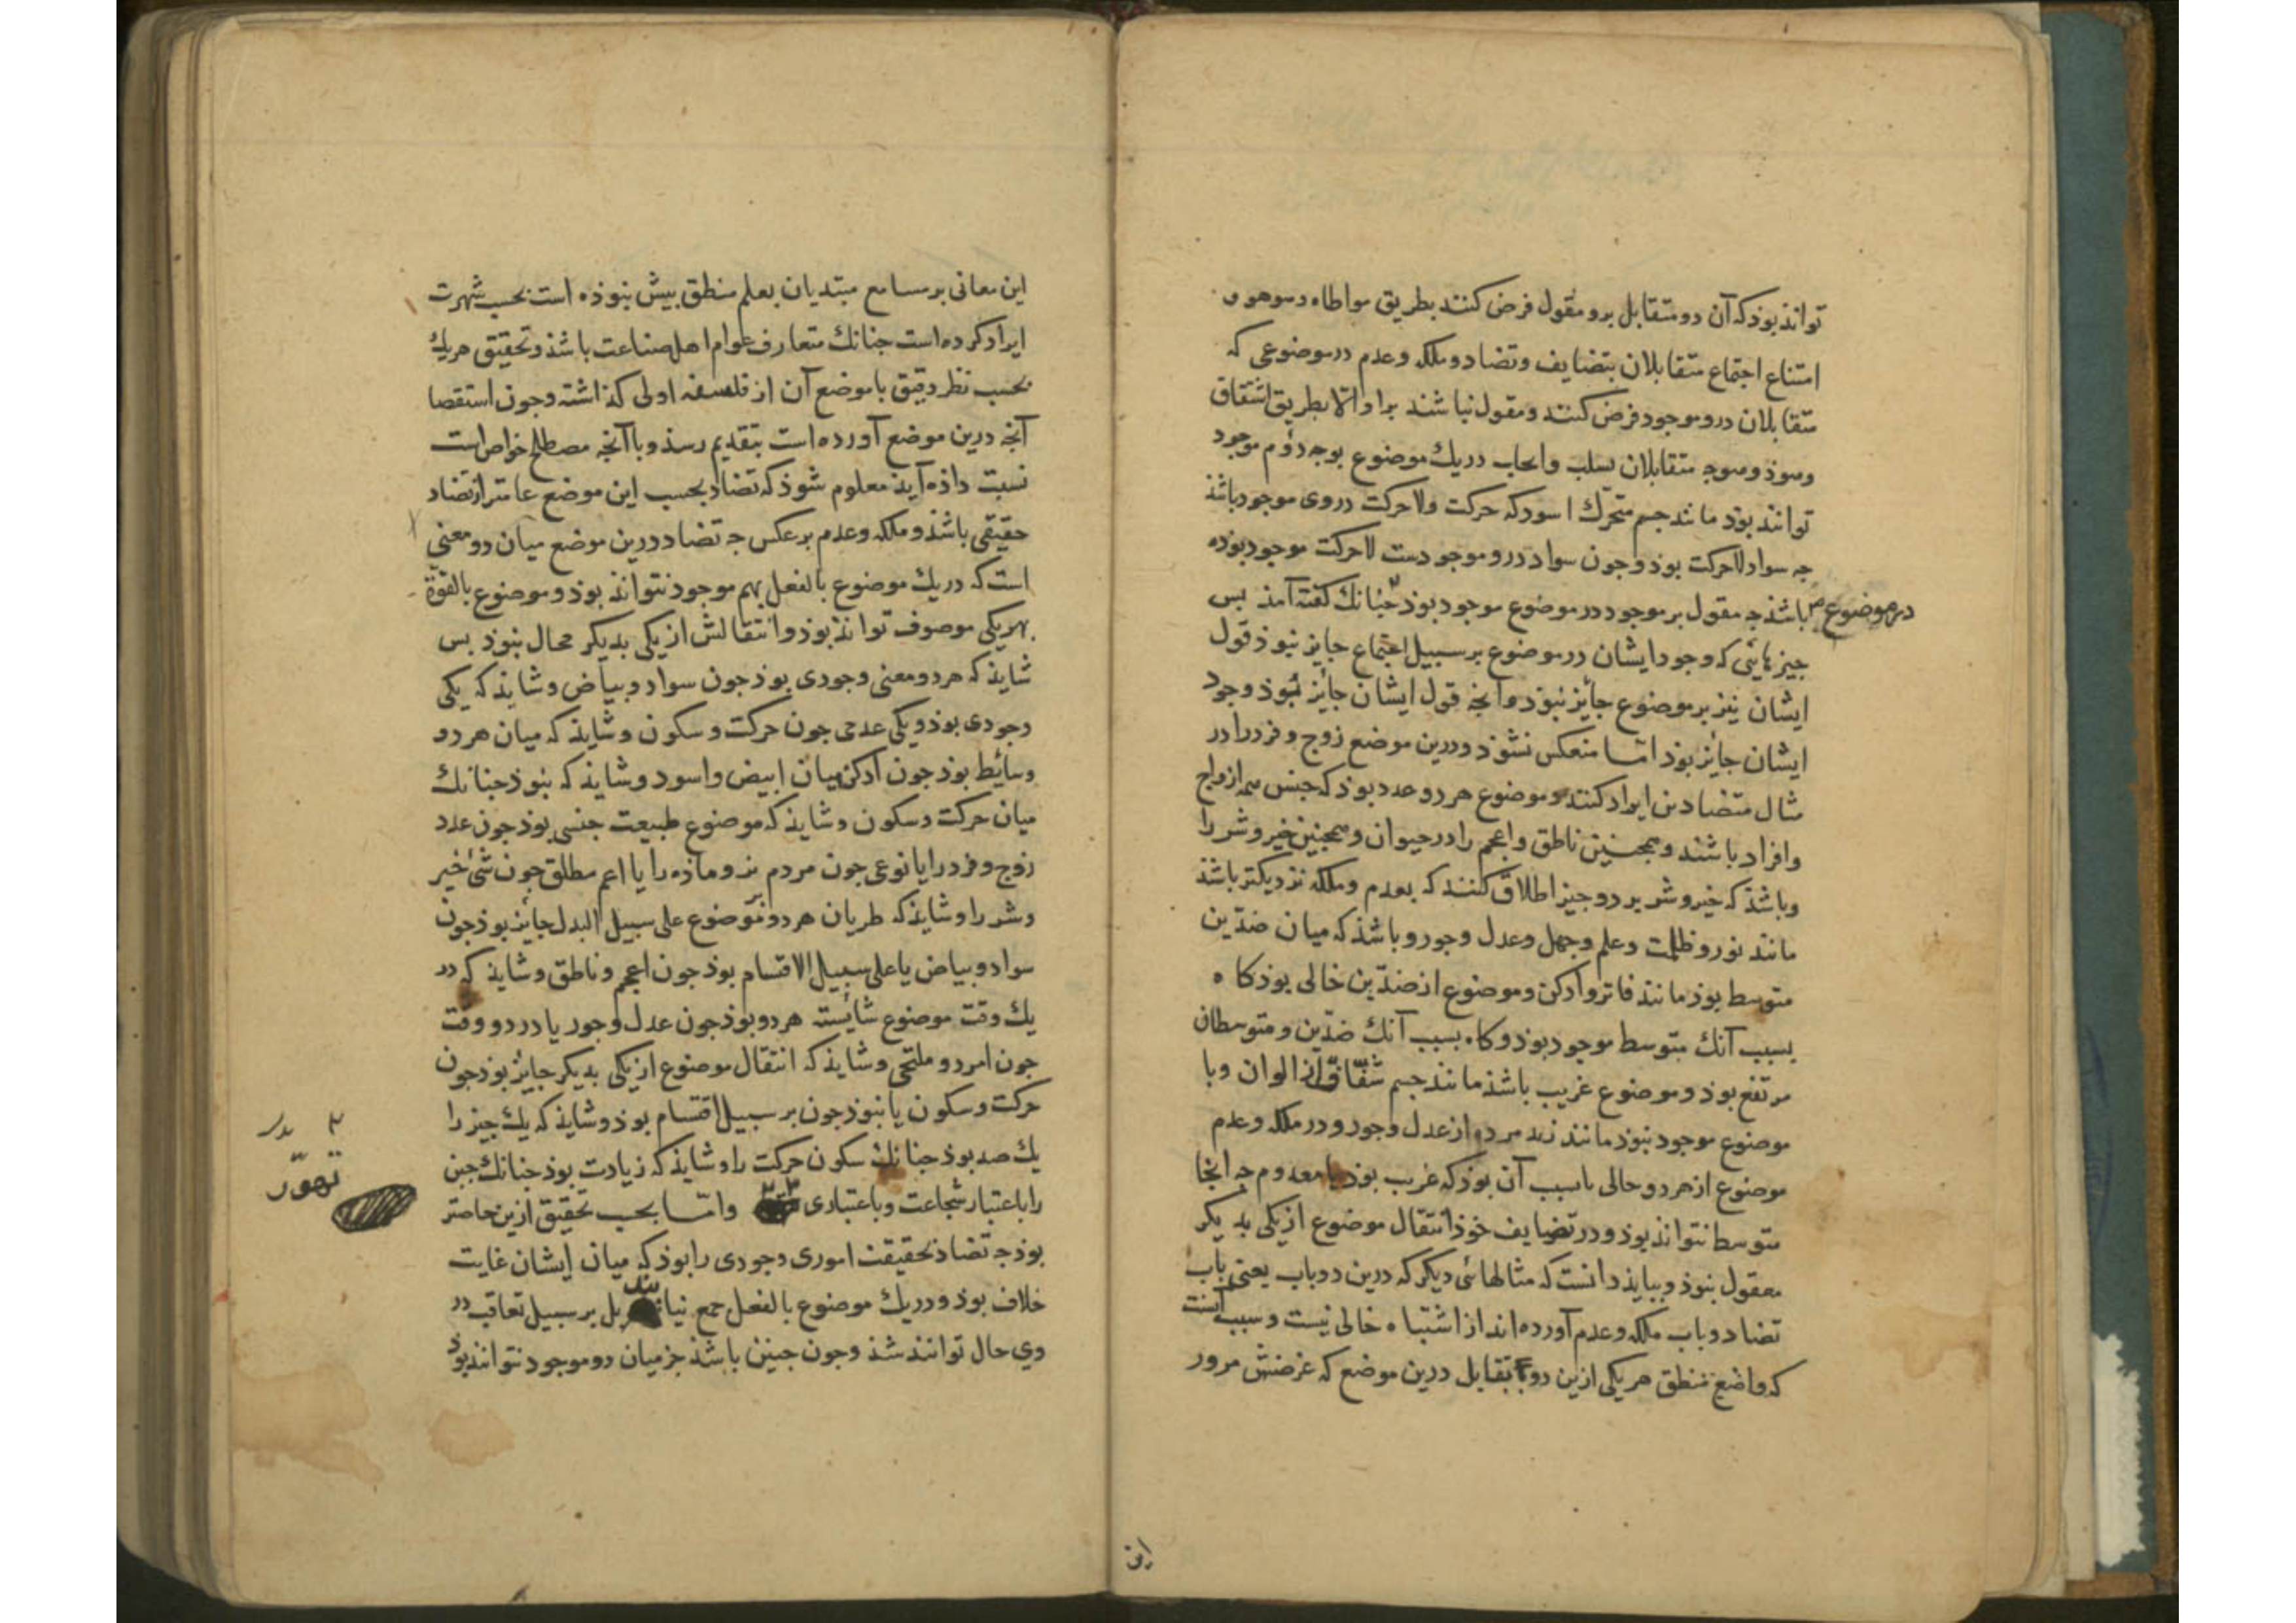 تواند بوذ که آن دو متقابل برو مقول فرض کنند بطریق مواطاه وهوهو و
امتناع اجتماع متقابلان بتضایف وتضاد وملکه وعدم در موضوعی که
متقابلان درو موجود فرض کنند ومقول نباشند براو الا بطریق اشتقاق
متقابلان بسلب وایجاب دریك موضوع بوجه دوم موجود
توانند بوذ مانند جسم متحرك اسود که حرکت ولاحرکت در وی موجود باشذ
جه سواد لاحرکت بوذ وجون سواد درو موجودست لاحرکت موجود بوذه
باشذ جه مقول بر موجود در موضوع موجود بوذ جنانك کفته آمذ بس
در موضوع
جیزهائی که وجود ایشان در موضوع بر سبیل اجتماع جایز نبوذ قول
ایشان نیز بر موضوع جائز نبوذ وانجه قول ایشان جائز نبوذ وجود
ایشان جایز بوذ امّا منعکس نشوذ ودرین موضع زوج وفرد را در
مثال متضادین ایراد کنند وموضوع هر دو عدد بوذ که جنس همه ازواج
وافراد باشند وهمجنین ناطق واعجم را در حیوان وهمجنین خیر وشر را
وباشذ که خیر وشر بر دو جیز اطلاق کنند که بعدم وملکه نزدیکتر باشذ
مانند نور وظلمت وعلم وجهل وعدل وجور وباشذ که میان ضدّین
متوسط بوذ مانند فاتر وادکن وموضوع از ضدّین خالی بوذ کاه
بسبب آنك متوسط موجود بوذ وکاه بسبب آنك ضدّین ومتوسطان
مرتفع بوذ وموضوع غریب باشذ مانند جسم شفّاف از الوان ویا
موضوع موجود نبوذ مانند زید مرده از عدل وجور ودر ملکه وعدم
موضوع از هر دو خالی بسبب آن بوذ که غریب بوذ یا معدوم جه انجا
متوسط نتواند بوذ ودر تضایف خوذ انتقال موضوع از یکی بدیکر
معقول بنوذ وبباید دانست که مثالهائی دیکر که درین دو باب یعنی باب
تضاد وباب ملکه وعدم آورده اند از اشتباه خالی نیست وسبب آنست
که واضع منطق هر یکی ازین دو تقابل درین موضع که غرضش مرور
این
این معانی بر مسامع مبتدیان بعلم منطق بیش نبوذه است بحسب شهرت
ایراد کرده است جنانك متعارف عوام اهل صناعت باشذ وتحقیق هریك
بحسب نظر دقیق با موضع آن از فلسفه اولی کذاشته وجون استقصا
آنجه درین موضع آورده است بتقدیم رسذ وبا آنجه مصطلح خواص است
نسبت داذه آید معلوم شوذ که تضاد بحسب این موضع عامتر از تضاد
حقیقی باشذ وملکه وعدم بر عکس جه تضاد درین موضع میان دو معنی
است که دریك موضوع بالفعل بهم موجود نتواند بوذ وموضوع بالقوّة
بهر یکی موصوف تواند بوذ وانتقالش از یکی بدیکر محال نبوذ بس
شاید که هر دو معنی وجودی بوذ جون سواد وبیاض وشاید که یکی
وجودی بوذ ویکی عدمی جون حرکت وسکون وشاید که میان هر دو
وسائط بوذ جون ادکن میان ابیض واسود وشاید که بنوذ جنانك
میان حرکت وسکون وشاید که موضوع طبیعت جنسی بوذ جون عدد
زوج وفرد را یا نوعی جون مردم نر وماذه را یا اعم مطلق جون شئ خیر
وشر را وشاید که طریان هر دو بر موضوع علی سبیل البدل جائز بوذ جون
سواد وبیاض یا علی سبیل الاقتسام بوذ جون اعجم وناطق وشاید که در
یك وقت موضوع شایسته هر دو بوذ جون عدل وجور یا در دو وقت
جون امرد وملتحی وشاید که انتقال موضوع از یکی بدیکر جایز بوذ جون
حرکت وسکون یا بنوذ جون بر سبیل اقتسام بوذ وشاید که یك جیز را
یك ضد بوذ جنانك سکون حرکت را وشاید که زیادت بوذ جنانك جبن
را باعتبار شجاعت وباعتباری وامّا بحسب تحقیق ازین خاصتر
تهوّر
بوذ جه تضاد بحقیقت اموری وجودی را بوذ که میان ایشان غایت
خلاف بوذ ودریك موضوع بالفعل جمع نیایند بل بر سبیل تعاقب در
وی حال توانند شذ وجون جنین باشذ جز میان دو موجود نتوانذ بوذ